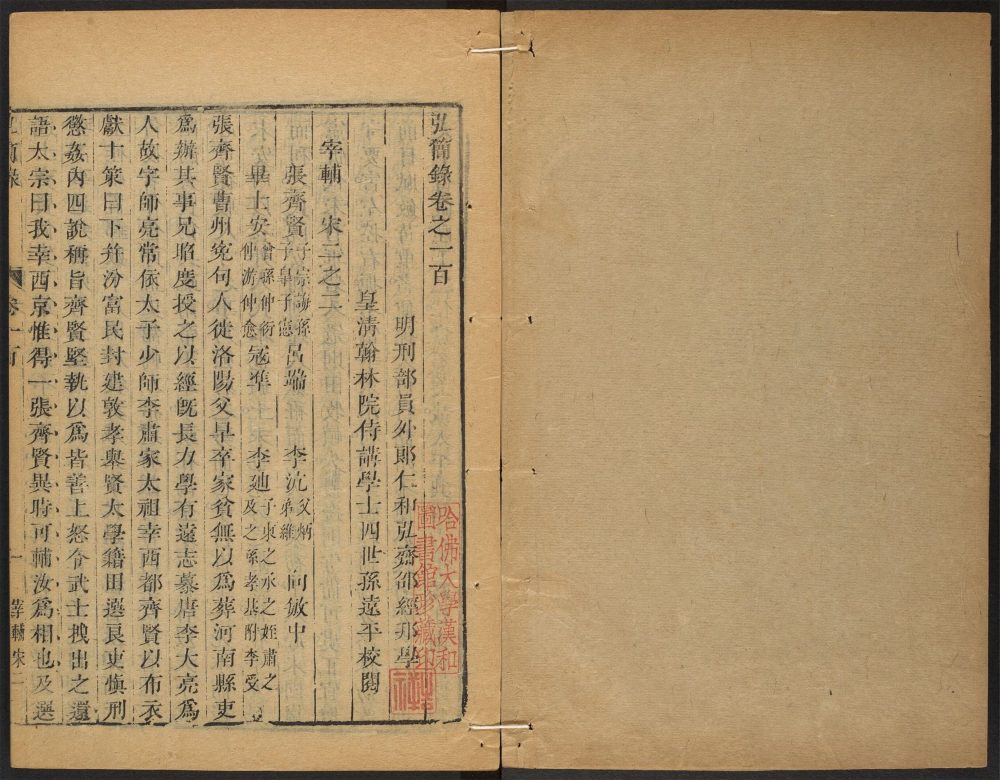 弘簡錄卷之一百
明刑部員外郎仁和弘齋邵經邦學
皇清翰林院侍講學士四世孫遠平校閱
宰輔 宋二之二
張齊賢 子宗誨孫子臯子憲 呂端 李沆 父炳弟維 向敏中
畢士安 曾孫仲衍仲游仲愈 寇準 李廸 子柬之承之姪肅之及之孫孝基附李受
張齊賢曹州寃句人徙洛陽父早卒家貧無以爲葬河南縣吏
爲辦其事兄昭慶授之以經旣長力學有遠志慕唐李大亮爲
人故字師亮常依太子少師李肅家太祖幸西都齊賢以布衣
獻十策曰下幷汾富民封建敦孝舉賢太學籍田選良吏愼刑
懲姦內四說稱旨齊賢堅執以爲皆善上怒令武士拽出之還
語太宗曰我幸西京惟得一張齊賢異時可輔汝爲相也及選
弘簡錄 卷一百 一 宰輔宋二
哈佛大學漢和
圖書館珍藏印